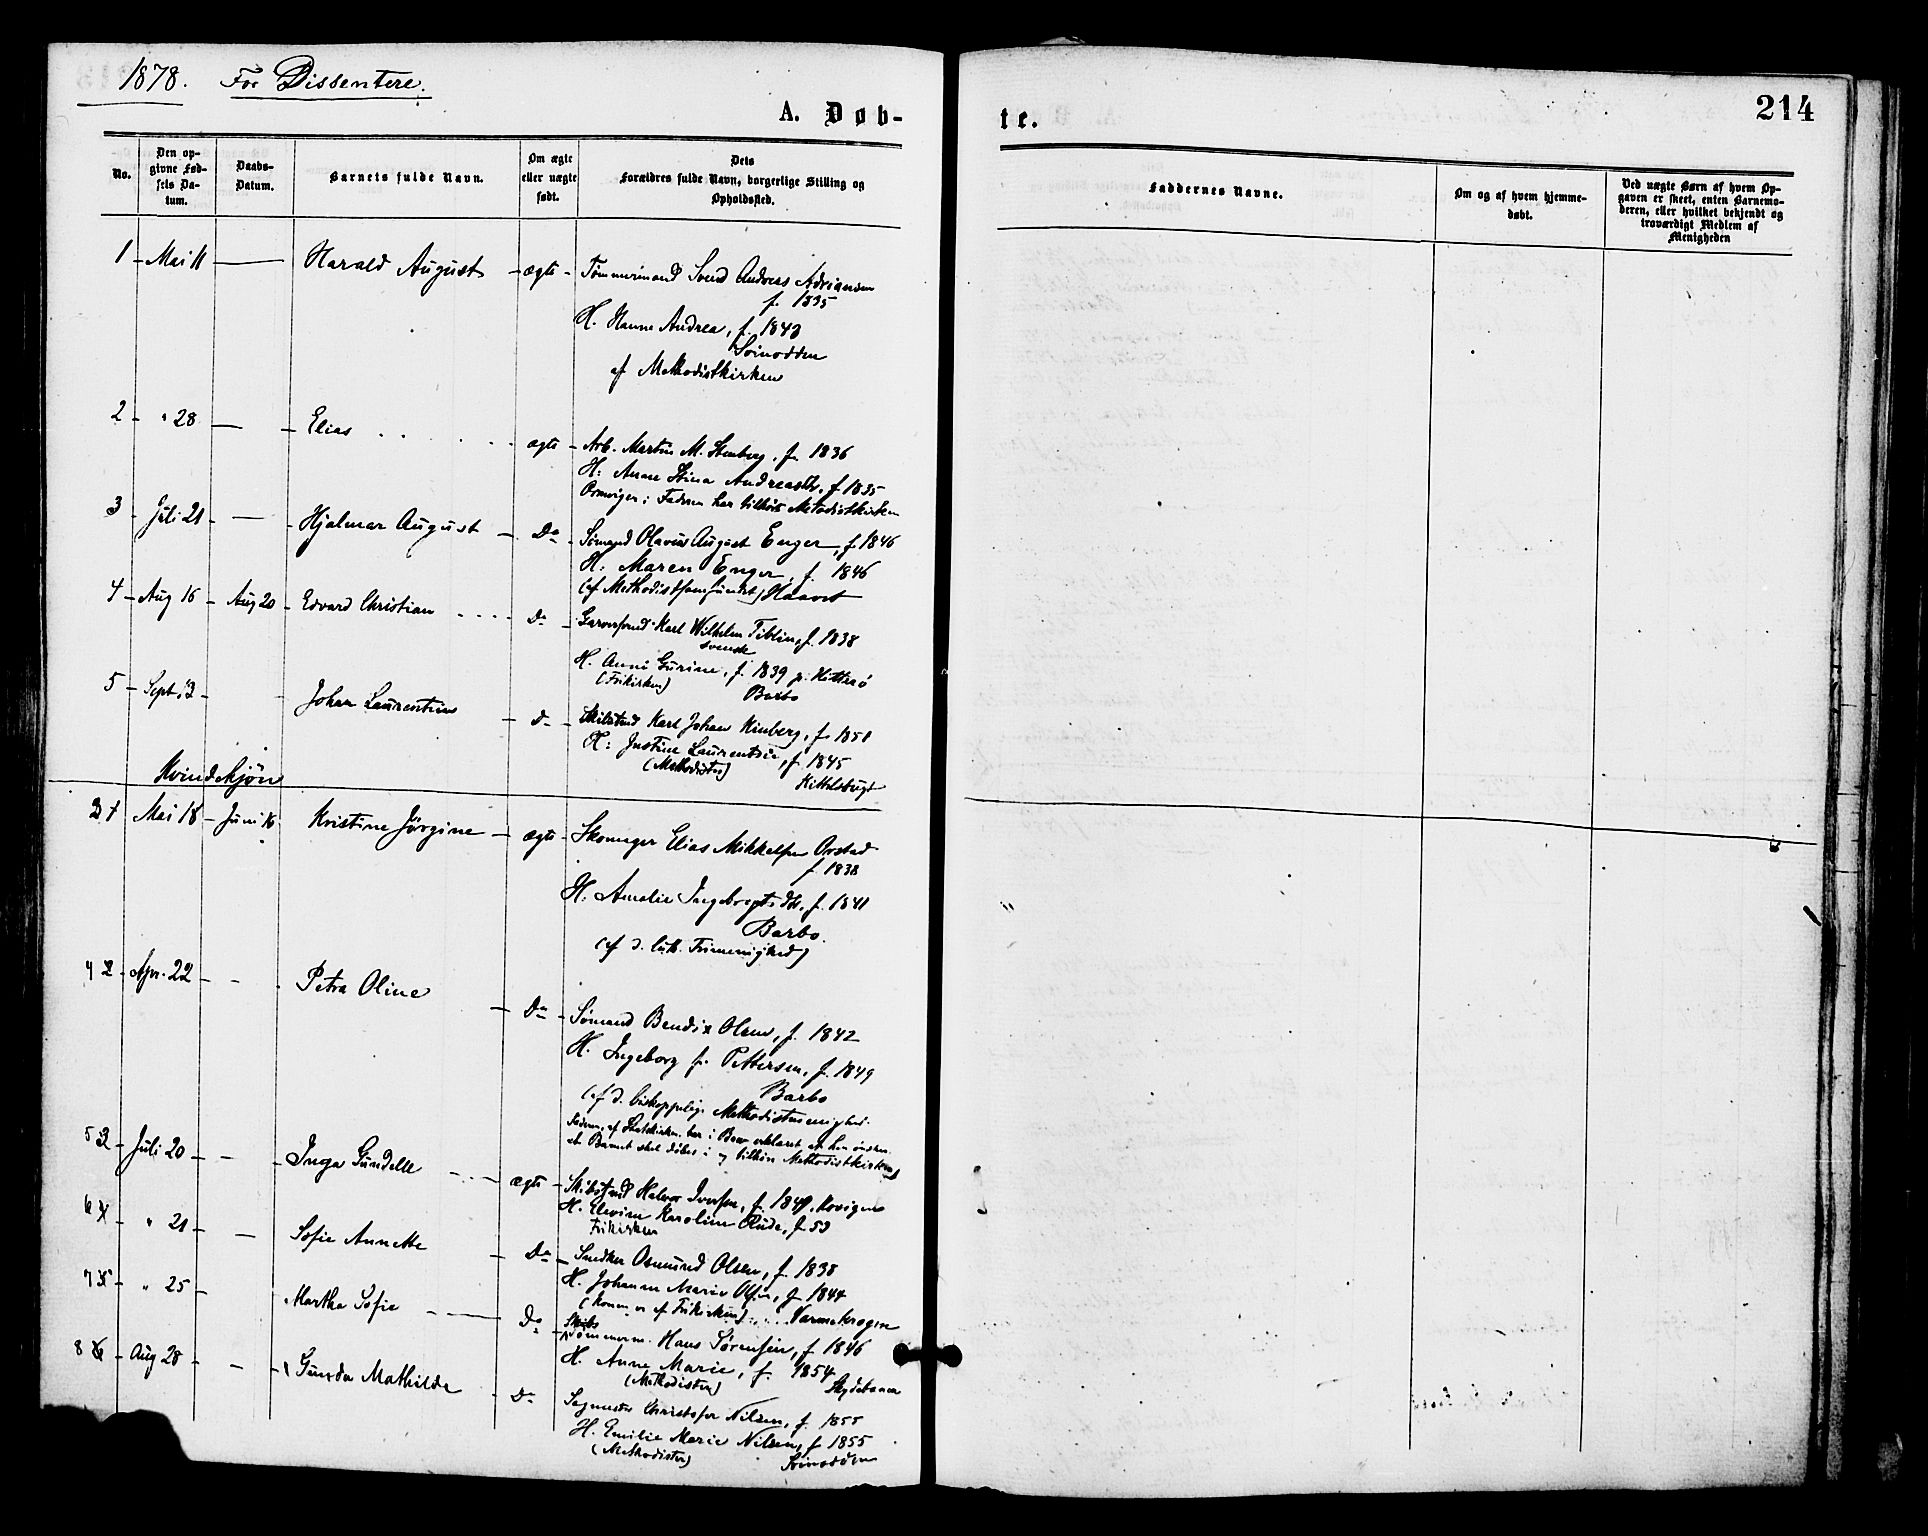 1878. For Dissentere.
214
A. Døb-
te.
No.
Den op-
givne Fød-
sels Da-
tum.
Daabs-
Datum.
Barnets fulde Navn.
Om ægte
eller uægte
født.
Dets
Forældres fulde Navn, borgerlige Stilling og
Opholdssted.
Faddernes Navne.
Om og af hvem hjemme-
døbt.
Ved uægte Børn af hvem Op-
gaven er skeet, enten Barnemo-
deren, eller hvilket bekjendt og
troværdigt Medlem af
Menigheden
1 - Mai 11 - Harald August - ægte - Tømmermand Svend Andreas Adriansen
f. 1835
H. Hanne Andrea, f. 1843
Soinodden
af Methodistkirken
2 - " 28 - Elias - ægte - Arb. Martin M. Stenberg, f. 1836
H: Anne Stina Andreasdtr. f 1835
Faderen har tilhørt Metodistkirken
3 - Juli 21 - Hjalmar August - Do - Sømand Olavus August Enger, f. 1846
H: Maren Enger, f. 1846
(af Methodistsamfundet)
4 - Aug 16 - Aug 20 - Edvard Christian - Do - Garversvend Karl Wilhelm Tiblin, f. 1838
svensk
H. Anne Gurine, f. 1839 p. Hitterø
(Frikirken) Barbo
5 - Sept. 12 - Johan Laurentius - Do - Karl Johan Kinberg, f. 1850
H: Justine Laurentsie, f. 1845
(Methodister)
Kittelsbugt
Kvindekjøn
1 Mai 18 - Juni 16 Kristine Jörgine - ægte - Skomager Elias Mikkelsen Orstad
f 1838
H. Amalie Ingebregtsdtr. f. 1841
Barbo.
(af d. luth. Frimenighed)
4 2 - Apr. 22 - Petra Oline - Do - Sømand Bendix Olsen, f. 1842
H. Ingeborg f. Pettersen, f. 1849
Barbo
(af d. biskoppelige Methodistmenighed.
Faderen, af Statskirken, har i Brev erklæret at han ønsker
at Barnet skal døbes i og tilhøre Methodistkirken)
5 Juli 20 - Inga Gundelle - ægte - Halvor Iversen, f. 1849,
H. Elevine Karoline f. 53
Frikirken
6 " 21 - Sofie Annette - Do - Snedker Osmund Olsen, f. 1838
H. Johanne Marie Olsen, f 1844
(Konen er af Frikirken) Varmekrogen
7 " 25 - Martha Sofie - Do - Skibs
Tømmerm. Hans Sørensen, f 1846
H. Anne Marie, f. 1854
(Methodister) Skydebanen
8 Aug 28 - Gunda Mathilde - Do - Christofer Nilsen, f. 1855
H. Emilie Marie Nilsen, f 1855
(Methodister) Soinodden